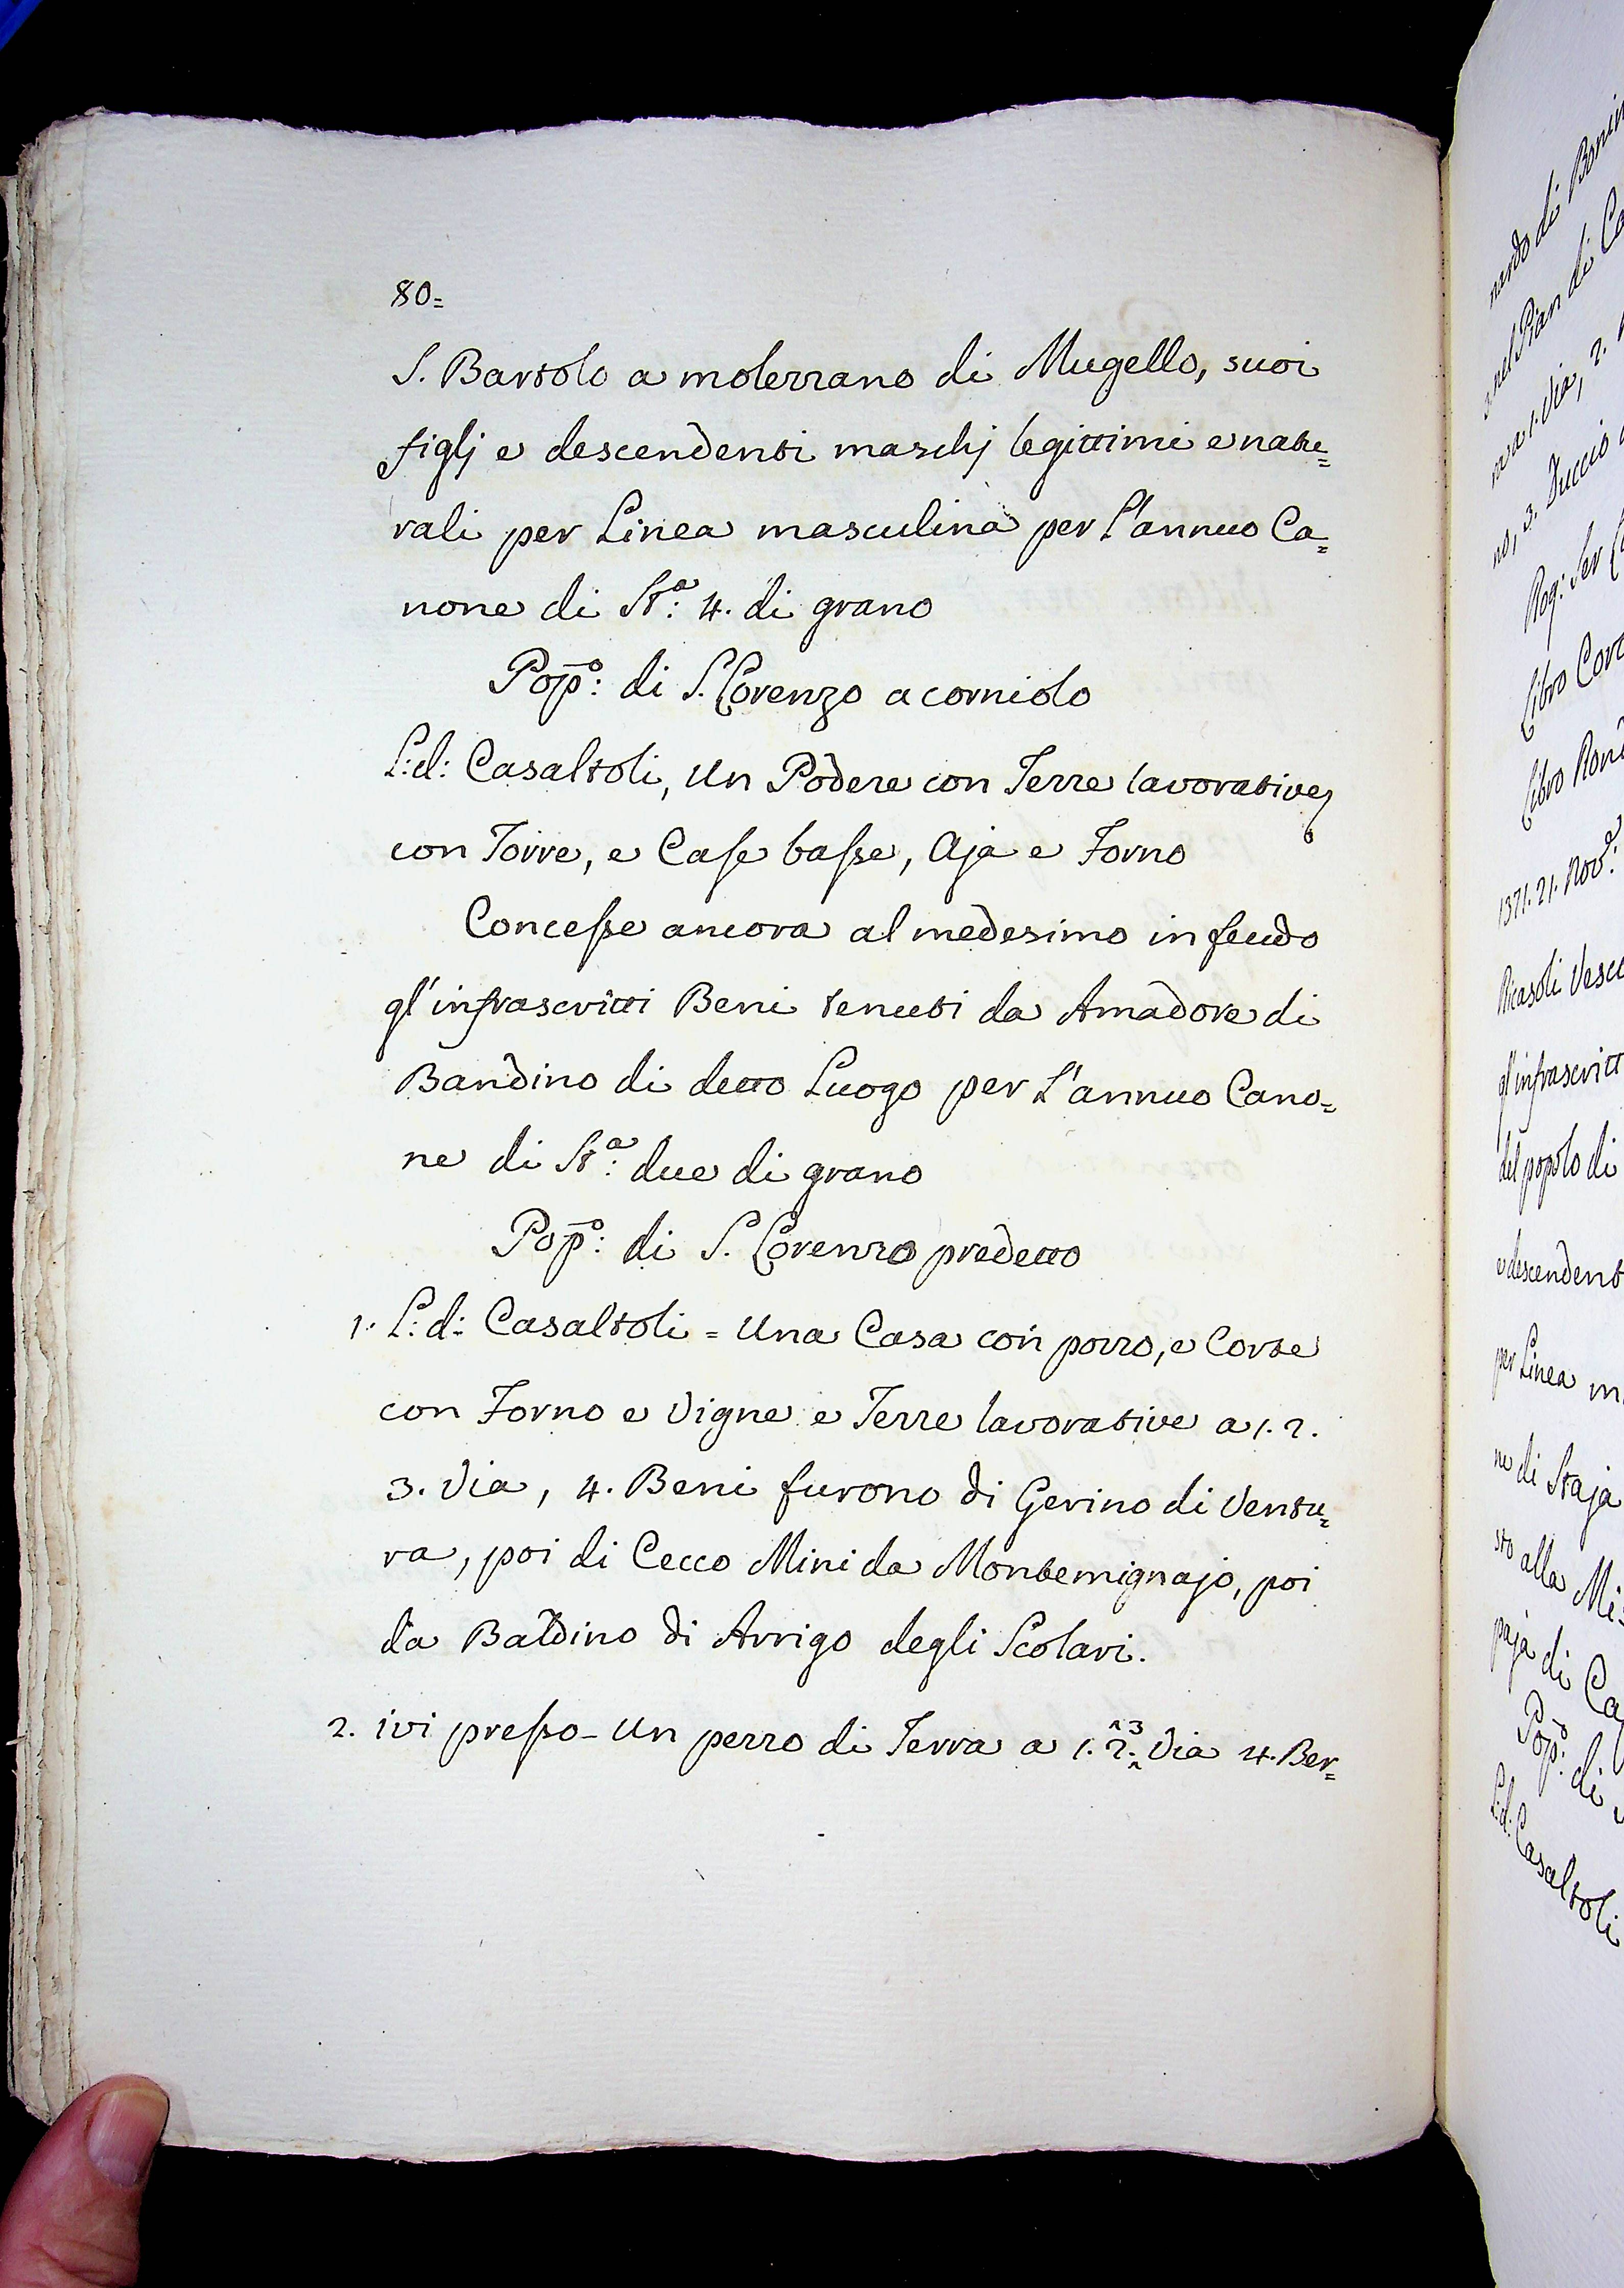 80=
S. Bartolo a molezzano di Mugello, suoi
figlj e descendenti maschj legittimi e natu=
rali per Linea masculina per l'annuo Ca=
none di St.ª: 4. di grano
Pop̄º: di S. Lorenzo a corniolo
L: d: Casaltoli, Un Podere con Terre lavorative,
con Torre, e Case basse, Aja e Forno
Concesse ancora al medesimo in feudo
gl'infrascritti Beni tenuti da Amadore di
Bandino di detto Luogo per l'annuo Cano=
ne di Stª: due di grano
Pop̄º: di S. Lorenzo predetto
1. L: d: Casaltoli = Una Casa con pozzo, e Corte
con Forno e Vigne e Terre lavorative a 1. 2.
3. Via, 4. Beni furono di Gerino di Ventu=
ra, poi di Cecco Mini da Montemignajo, poi
da Baldino di Arrigo degli Scolari.
2. ivi presso - Un pezzo di Terra a 1. 2. ^3 Via 4. Ber=
nardo di
nel Pian di
1. Via, 2.
no, 3. Duccio
Rog: Ser
Libro
Libro
1371. 21. Nov.
Ricasoli Vesc
gl'infrascritt
del popolo di
e descendent
per Linea m
ne di Staja
sto alla
paja di
Pop̄º: di
L: d: Casaltoli